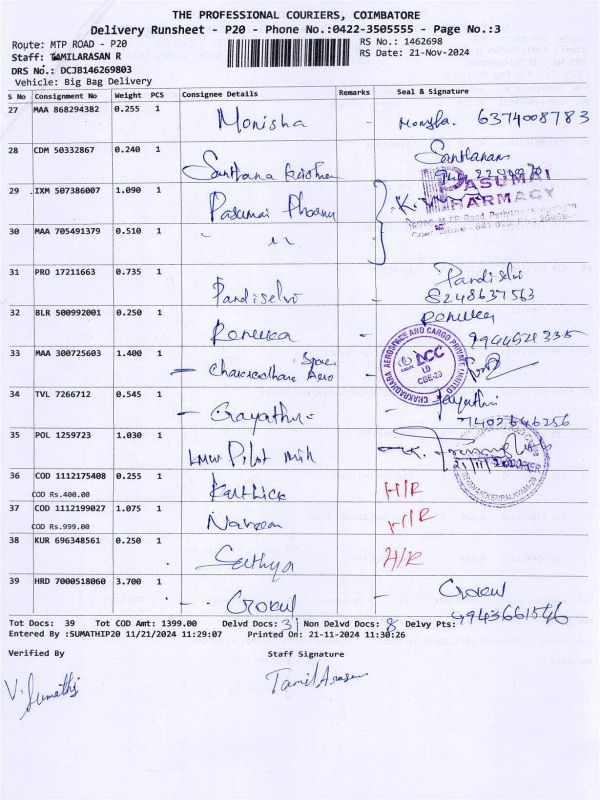 THE PROFESSIONAL COURIERS, COIMBATORE
Delivery Runsheet - P20 - Phone No.:0422-3505555 - Page No.:3
Route: MTP ROAD - P20 RS No.: 1462698
Staff: TAMILARASAN R RS Date: 21-Nov-2024
DRS No.: DCJB146269803
Vehicle: Big Bag Delivery
S No Consignment No Weight PCS Consignee Details Remarks Seal & Signature
27 MAA 868294382 0.255 1 Monisha - Monisha. 6374008783
28 CDM 50332867 0.240 1 Santhana Santhanam
29 IXM 507386007 1.090 1 Pasumai Pharma PASUMAI PHARMACY
30 MAA 705491379 0.510 1
31 PRO 17211663 0.735 1 Pandiselvi - Pandiselvi
8248637563
32 BLR 500992001 0.250 1 Renuka - Renuka
9944521335
33 MAA 300725603 1.400 1 - Chakradhara Aero Space CHAKRADHARA AEROSPACE AND CARGO PRIVATE LIMITED CACC LD CBE-29
34 TVL 7266712 0.545 1 - Gayathri - Gayathri
7402646256
35 POL 1259723 1.030 1 LMW 21/11/2024
36 COD 1112175408 0.255 1 Karthick H/R
COD Rs.400.00
37 COD 1112199027 1.075 1 Naveen H/R
COD Rs.999.00
38 KUR 696348561 0.250 1 Sathya H/R
39 HRD 7000518060 3.700 1 - Gokul - Gokul
9943661546
Tot Docs: 39 Tot COD Amt: 1399.00 Delvd Docs: 31 Non Delvd Docs: 8 Delvy Pts:
Entered By :SUMATHIP20 11/21/2024 11:29:07 Printed On: 21-11-2024 11:30:26
Verified By Staff Signature
V. Sumathi TamilArasan